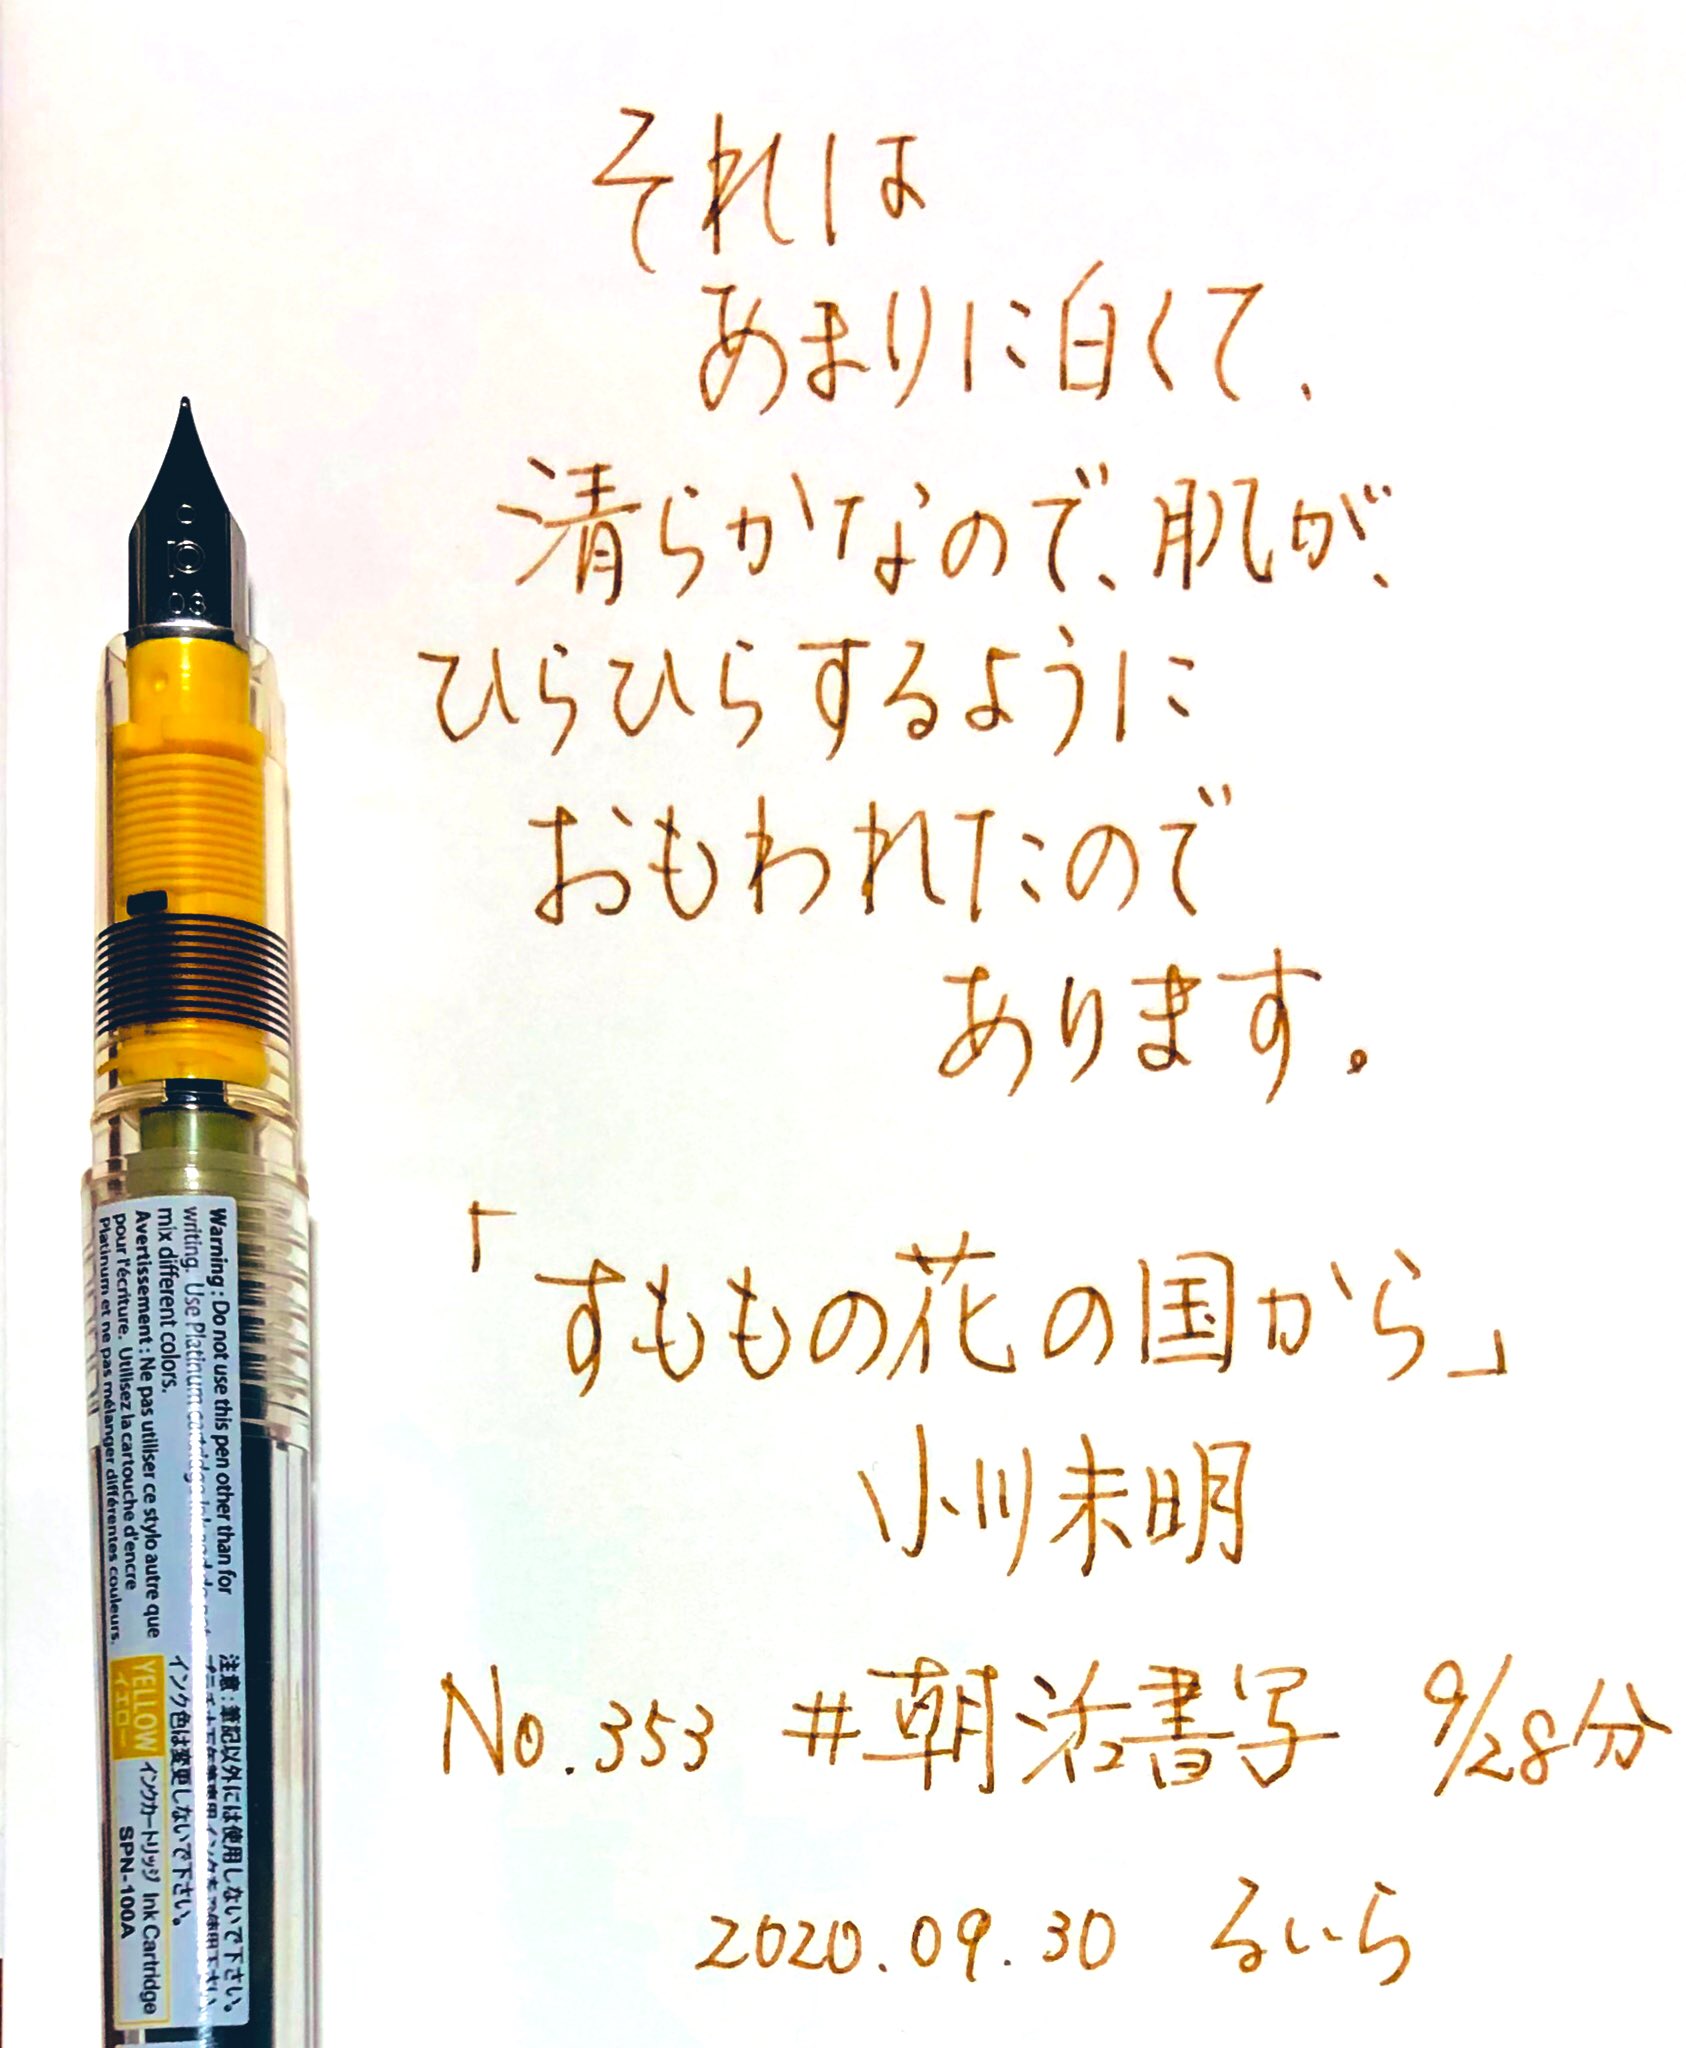 それは
あまりに白くて、
清らかなので、肌が、
ひらひらするように
おもわれたので
あります。
「すももの花の国から」
小川未明
No.353 #朝活書写 9/28分
2020.09.30 るいら
p
03
Warning : Do not use this pen other than for
writing. Use Platinum cartridge
mix different colors.
Avertissement : Ne pas utiliser ce stylo autre que
pour l'écriture. Utilisez la cartouche d'encre
Platinum et ne pas mélanger différentes couleurs.
注意:筆記以外には使用しないで下さい。
インク色は変更しないで下さい。
YELLOW インクカートリッジ Ink Cartridge
イエロー SPN-100A